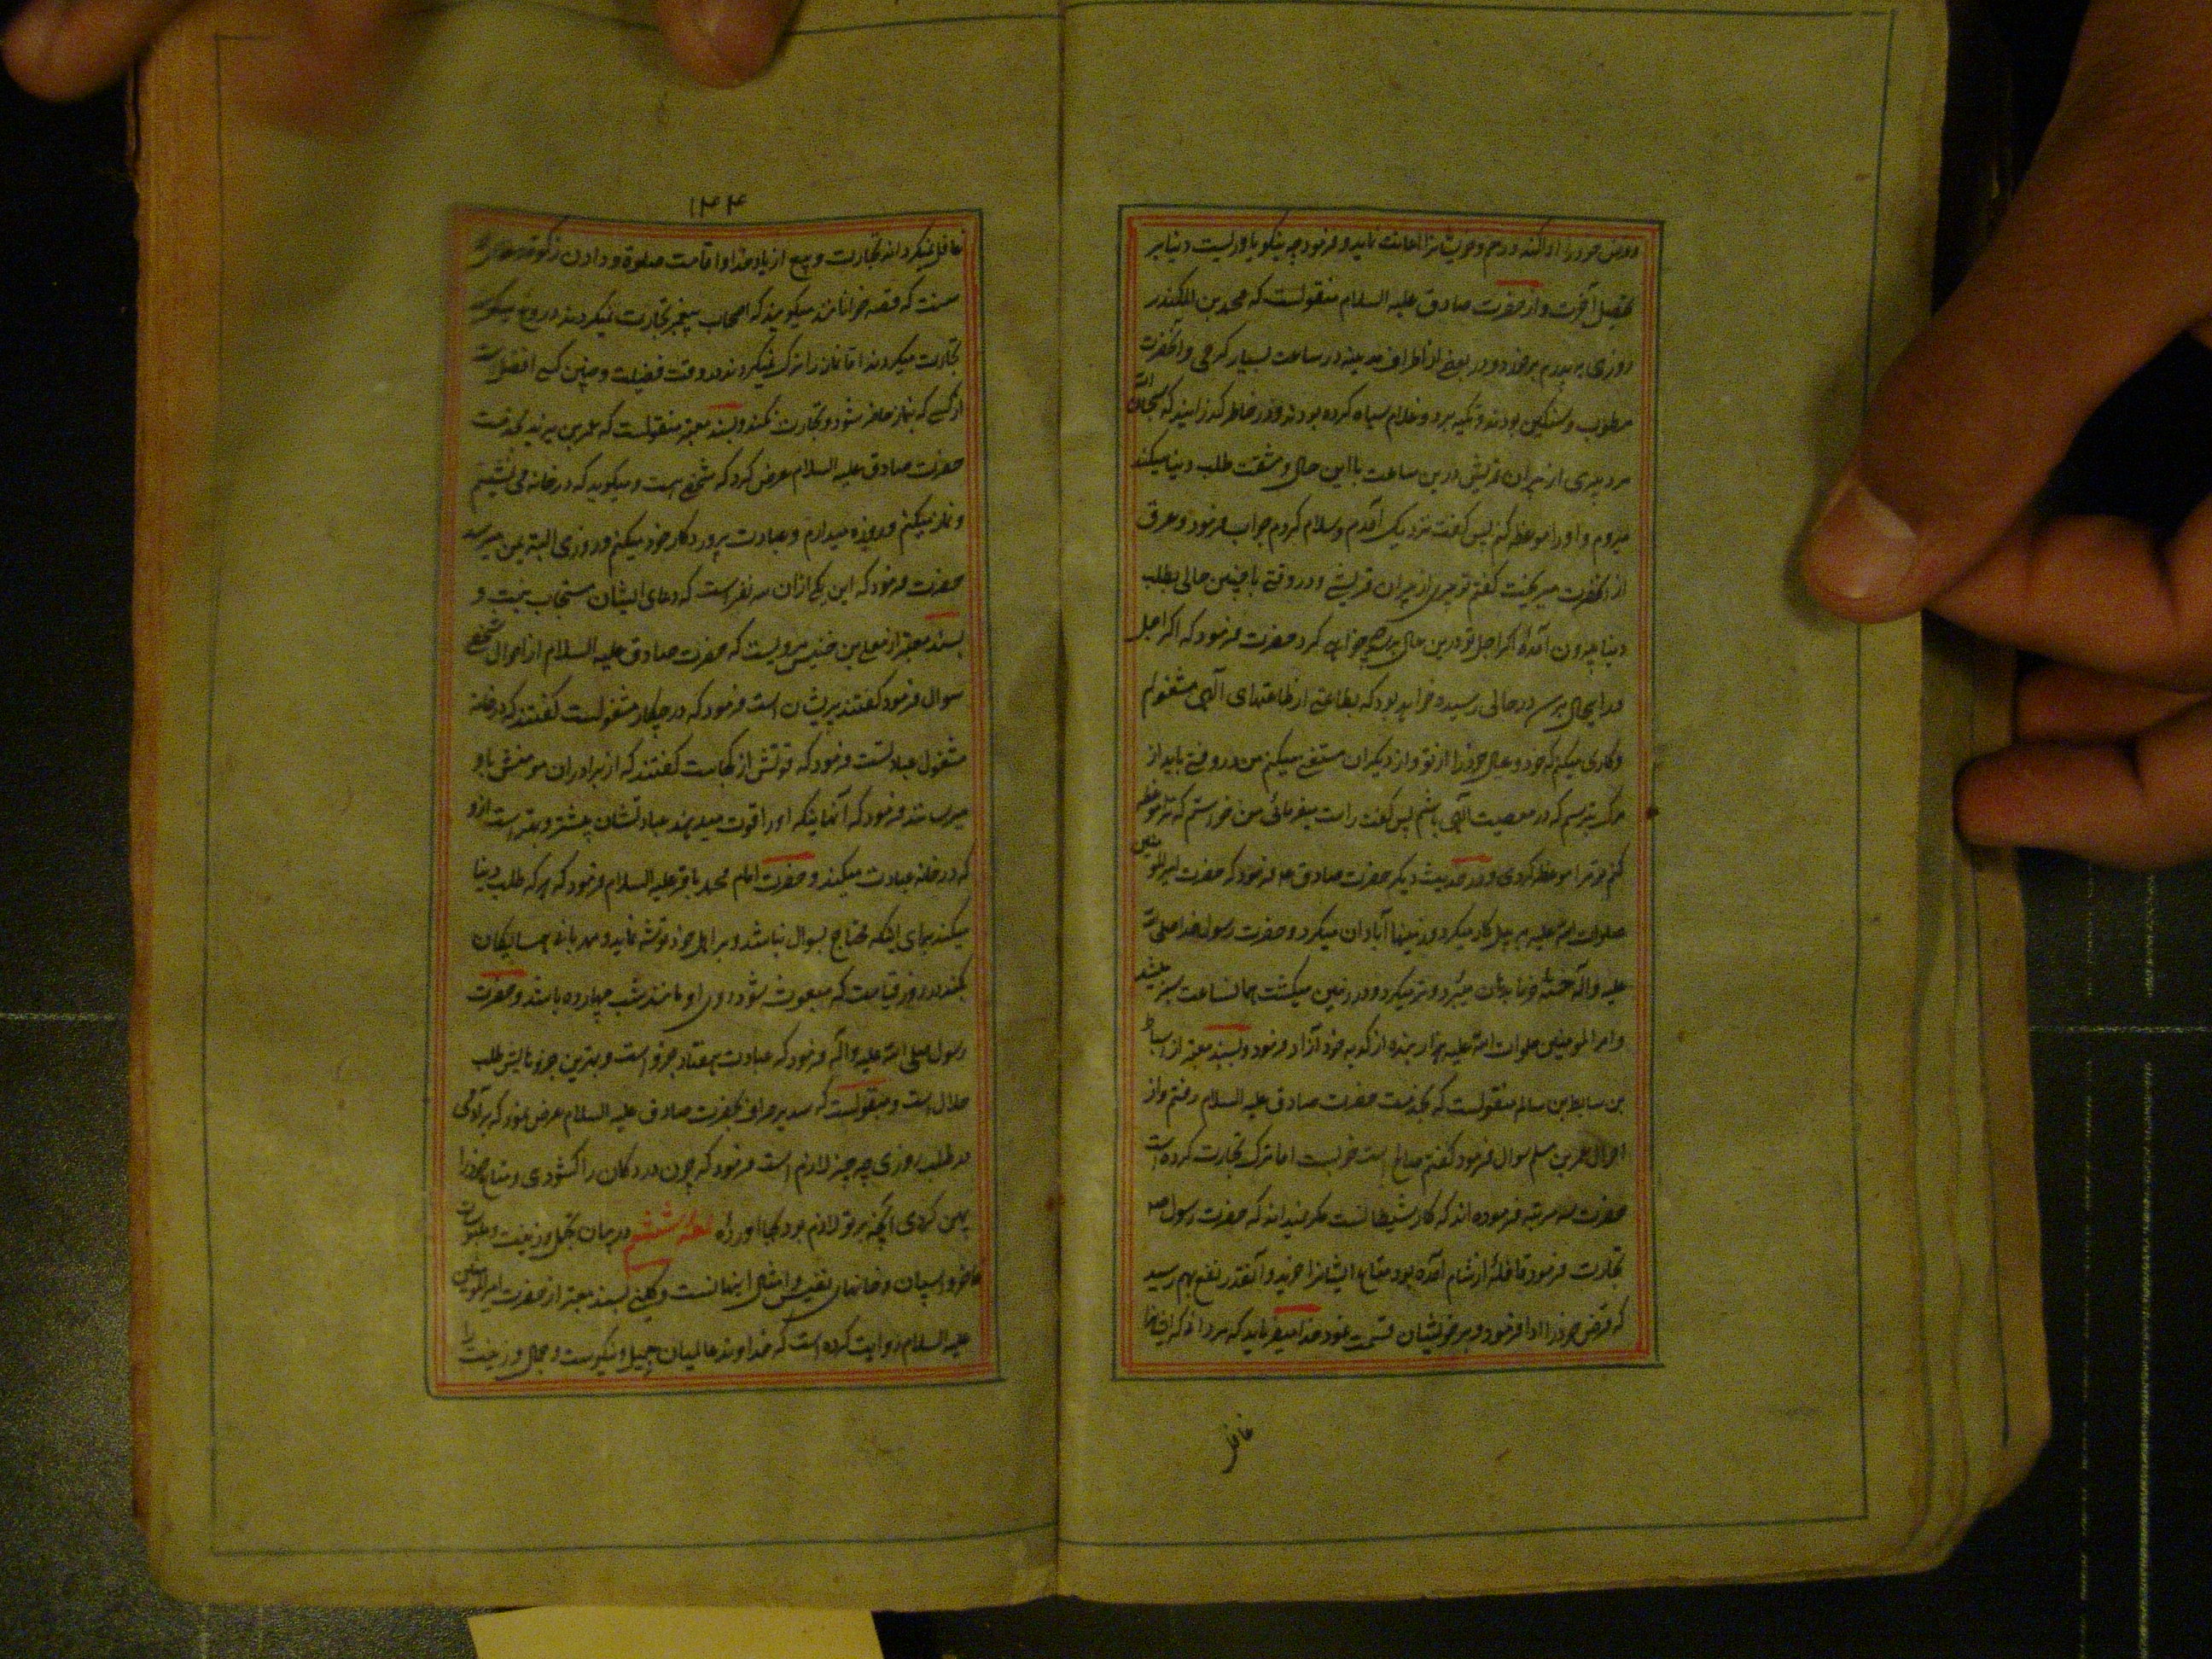 و قرض خود را ادا کند و رحم و خویشانرا اعانت نماید و فرمود چه نیکو یاوریست دنیا بر
تحصیل آخرت و از حضرت صادق علیه السلام منقولست که محمد بن المنکدر
روزی به پدرم برخورد در بعضی از اطراف مدینه در ساعت بسیار گرمی و آنحضرت
مرطوب و سنگین بودند و تکیه بر دو غلام سیاه کرده بودند و در خاطر گذرانید که سبحان الله
مرد پیری از پیران قریش درین ساعت با این حال و مشقت طلب دنیا میکند
میروم و او را موعظه کنم پس گفت نزدیک آمدم و سلام کردم جواب فرمود و عرق
از آنحضرت میریخت گفتم تو پیری از پیران قریشی و در وقتی با چنین حالی بطلب
دنیا بیرون آمدهٔ اگر اجل تو درین حال برسد چه خواهی کرد حضرت فرمود که اگر اجل
در اینحال برسد در حالی رسیده خواهد بود که بطاعتی از طاعتهای الهی مشغولم
و کاری میکنم که خود و عیال خود را از تو و از دیگران مستغنی میکنم من در وقتی باید از
مرگ بترسم که در معصیت الهی باشم پس گفت راست میفرمائی من خواستم که ترا موعظه
کنم تو مرا موعظه کردی و در حدیث دیگر حضرت صادق ع فرمود که حضرت امیر المومنین
صلوات الله علیه به بیل کار میکرد و زمینها آبادان میکرد و حضرت رسول خدا صلی الله
علیه و اله هستهٔ خرما بدهان میبرد و تر میکرد و در زمین میکشت همانساعت سبز میشد
و امیر المومنین صلوات الله علیه هزار بنده از کد ید خود آزاد فرمود و بسند معتبر از اسباط
بن سالم منقولست که بخدمت حضرت صادق علیه السلام رفتم و از
احوال عمر بن مسلم سوال فرمود گفتم صالح است خوبست اما ترک تجارت کرده است
حضرت سه مرتبه فرموده اند که کار شیطانست مگر نمیداند که حضرت رسول ص
تجارت فرمود قافلهٔ از شام آمده بود متاع ایشانرا خرید و آنقدر نفع بهم رسید
که قرض خود را ادا فرمود و بر خویشان قسمت نمود خدا میفرماید که مردانی که ایشانرا
غافل
۱۴۴
غافل نمیگرداند تجارت و بیع از یاد خدا و اقامت صلوة و دادن زکوة
سنت که قصه خوانانند میگویند که اصحاب پیغمبر تجارت نمیکردند دروغ میگویند
تجارت میکردند اما نماز را ترک نمیکردند در وقت فضیلت و چنین کسی افضل است
از کسی که بنماز حاضر شود و تجارت نکند و بسند معتبر منقولست که عمر بن یزید بخدمت
حضرت صادق علیه السلام عرض کرد که شخصی هست و میگوید که در خانه می نشینم
و نماز میکنم و روزه میدارم و عبادت پروردگار خود میکنم و روزی البته بمن میرسد
حضرت فرمود که این یکی ازان سه نفر است که دعای ایشان مستجاب نیست و
بسند معتبر از معلی بن خنیس مرویست که حضرت صادق علیه السلام از احوال شخصی
سوال فرمود گفتند پریشان است فرمود که در چکار مشغولست گفتند که در خانه
مشغول عبادتست فرمود که قوتش از کجاست گفتند که از برادران مومنش باو
میرسد فرمود که آنهاییکه او را قوت میدهند عبادتشان بیشتر و بهتر است ازو
که در خانه عبادت میکند و حضرت امام محمد باقر علیه السلام فرمود که هر که طلب دنیا
میکند برای اینکه محتاج بسوال نباشد و بر اهل خود توشه نماید و مهربانی همسایگان
بکند در روز قیامت که مبعوث شود روی او مانند شب چهارده باشد و حضرت
رسول صلی الله علیه و اله فرمود که عبادت هفتاد جزو است و بهترین جزوهایش طلب
حلال است و منقولست که سدیر صراف بحضرت صادق علیه السلام عرض نمود که بر آدمی
در طلب روزی چه چیز لازم است فرمود که چون در دکان را گشودی و متاع خود را
پهن کردی آنچه بر تو لازم بود بجا آوردهٔ لمعه ششم در بیان تجمل و زینت و ملبوسات
فاخر و اسپان و خانهای نفیس و امثال اینهاست و کلینی بسند معتبر از حضرت امیر المومنین
علیه السلام روایت کرده است که خداوند عالمیان جمیل و نیکوست و جمال و زینت را